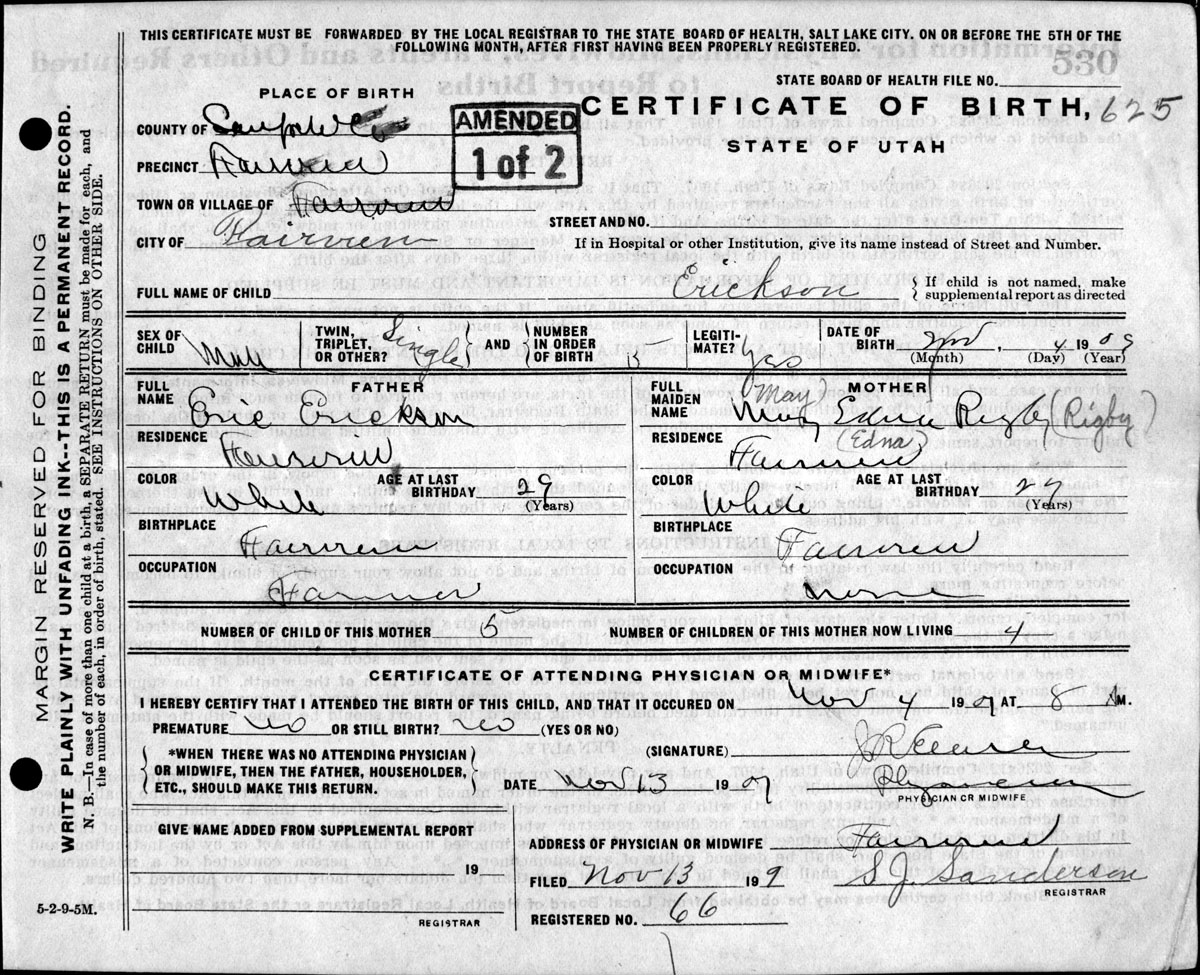 THIS CERTIFICATE MUST BE FORWARDED BY THE LOCAL REGISTRAR TO THE STATE BOARD OF HEALTH, SALT LAKE CITY. ON OR BEFORE THE 5TH OF THE
FOLLOWING MONTH, AFTER FIRST HAVING BEEN PROPERLY REGISTERED.
530
STATE BOARD OF HEALTH FILE NO.
PLACE OF BIRTH
CERTIFICATE OF BIRTH, 625
STATE OF UTAH
AMENDED
1 of 2
COUNTY OF Sanpete
PRECINCT Fairview
TOWN OR VILLAGE OF Fairview
STREET AND NO.
CITY OF Fairview
If in Hospital or other Institution, give its name instead of Street and Number.
FULL NAME OF CHILD Erickson { If child is not named, make
supplemental report as directed
SEX OF CHILD Male
TWIN, TRIPLET, OR OTHER? Single } AND { NUMBER IN ORDER OF BIRTH 5
LEGITIMATE? Yes
DATE OF BIRTH Nov, 4 1909
(Month) (Day) (Year)
FATHER
FULL NAME Eric Erickson
RESIDENCE Fairview
COLOR White
AGE AT LAST BIRTHDAY 29 (Years)
BIRTHPLACE Fairview
OCCUPATION Farmer
MOTHER
FULL MAIDEN NAME May Edna Rigby (Rigby)
May
(Edna)
RESIDENCE Fairview
COLOR White
AGE AT LAST BIRTHDAY 27 (Years)
BIRTHPLACE Fairview
OCCUPATION None
NUMBER OF CHILD OF THIS MOTHER 5 NUMBER OF CHILDREN OF THIS MOTHER NOW LIVING 4
CERTIFICATE OF ATTENDING PHYSICIAN OR MIDWIFE*
I HEREBY CERTIFY THAT I ATTENDED THE BIRTH OF THIS CHILD, AND THAT IT OCCURED ON Nov 4 1909 AT 8 A M.
PREMATURE No OR STILL BIRTH? No (YES OR NO)
*WHEN THERE WAS NO ATTENDING PHYSICIAN
OR MIDWIFE, THEN THE FATHER, HOUSEHOLDER,
ETC., SHOULD MAKE THIS RETURN.
(SIGNATURE)
DATE Nov 13 1909 Physician
PHYSICIAN OR MIDWIFE
GIVE NAME ADDED FROM SUPPLEMENTAL REPORT
19
REGISTRAR
ADDRESS OF PHYSICIAN OR MIDWIFE Fairview
FILED Nov 13 1909 S. J. Sanderson
REGISTRAR
REGISTERED NO. 66
5-2-9-5M.
MARGIN RESERVED FOR BINDING
WRITE PLAINLY WITH UNFADING INK--THIS IS A PERMANENT RECORD.
N. B.—In case of more than one child at a birth, a SEPARATE RETURN must be made for each, and
the number of each, in order of birth, stated. SEE INSTRUCTIONS ON OTHER SIDE.